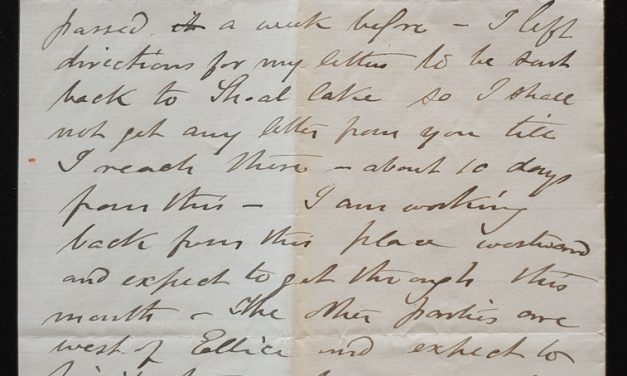 passed a week before – I left
directions for my letters to be sent
back to Shoal Lake so I shall
not get any letter from you till
I reach there – about 10 days
from this – I am working
back from this place westward
and expect to get through this
month – The other parties are
west of Ellice and expect to